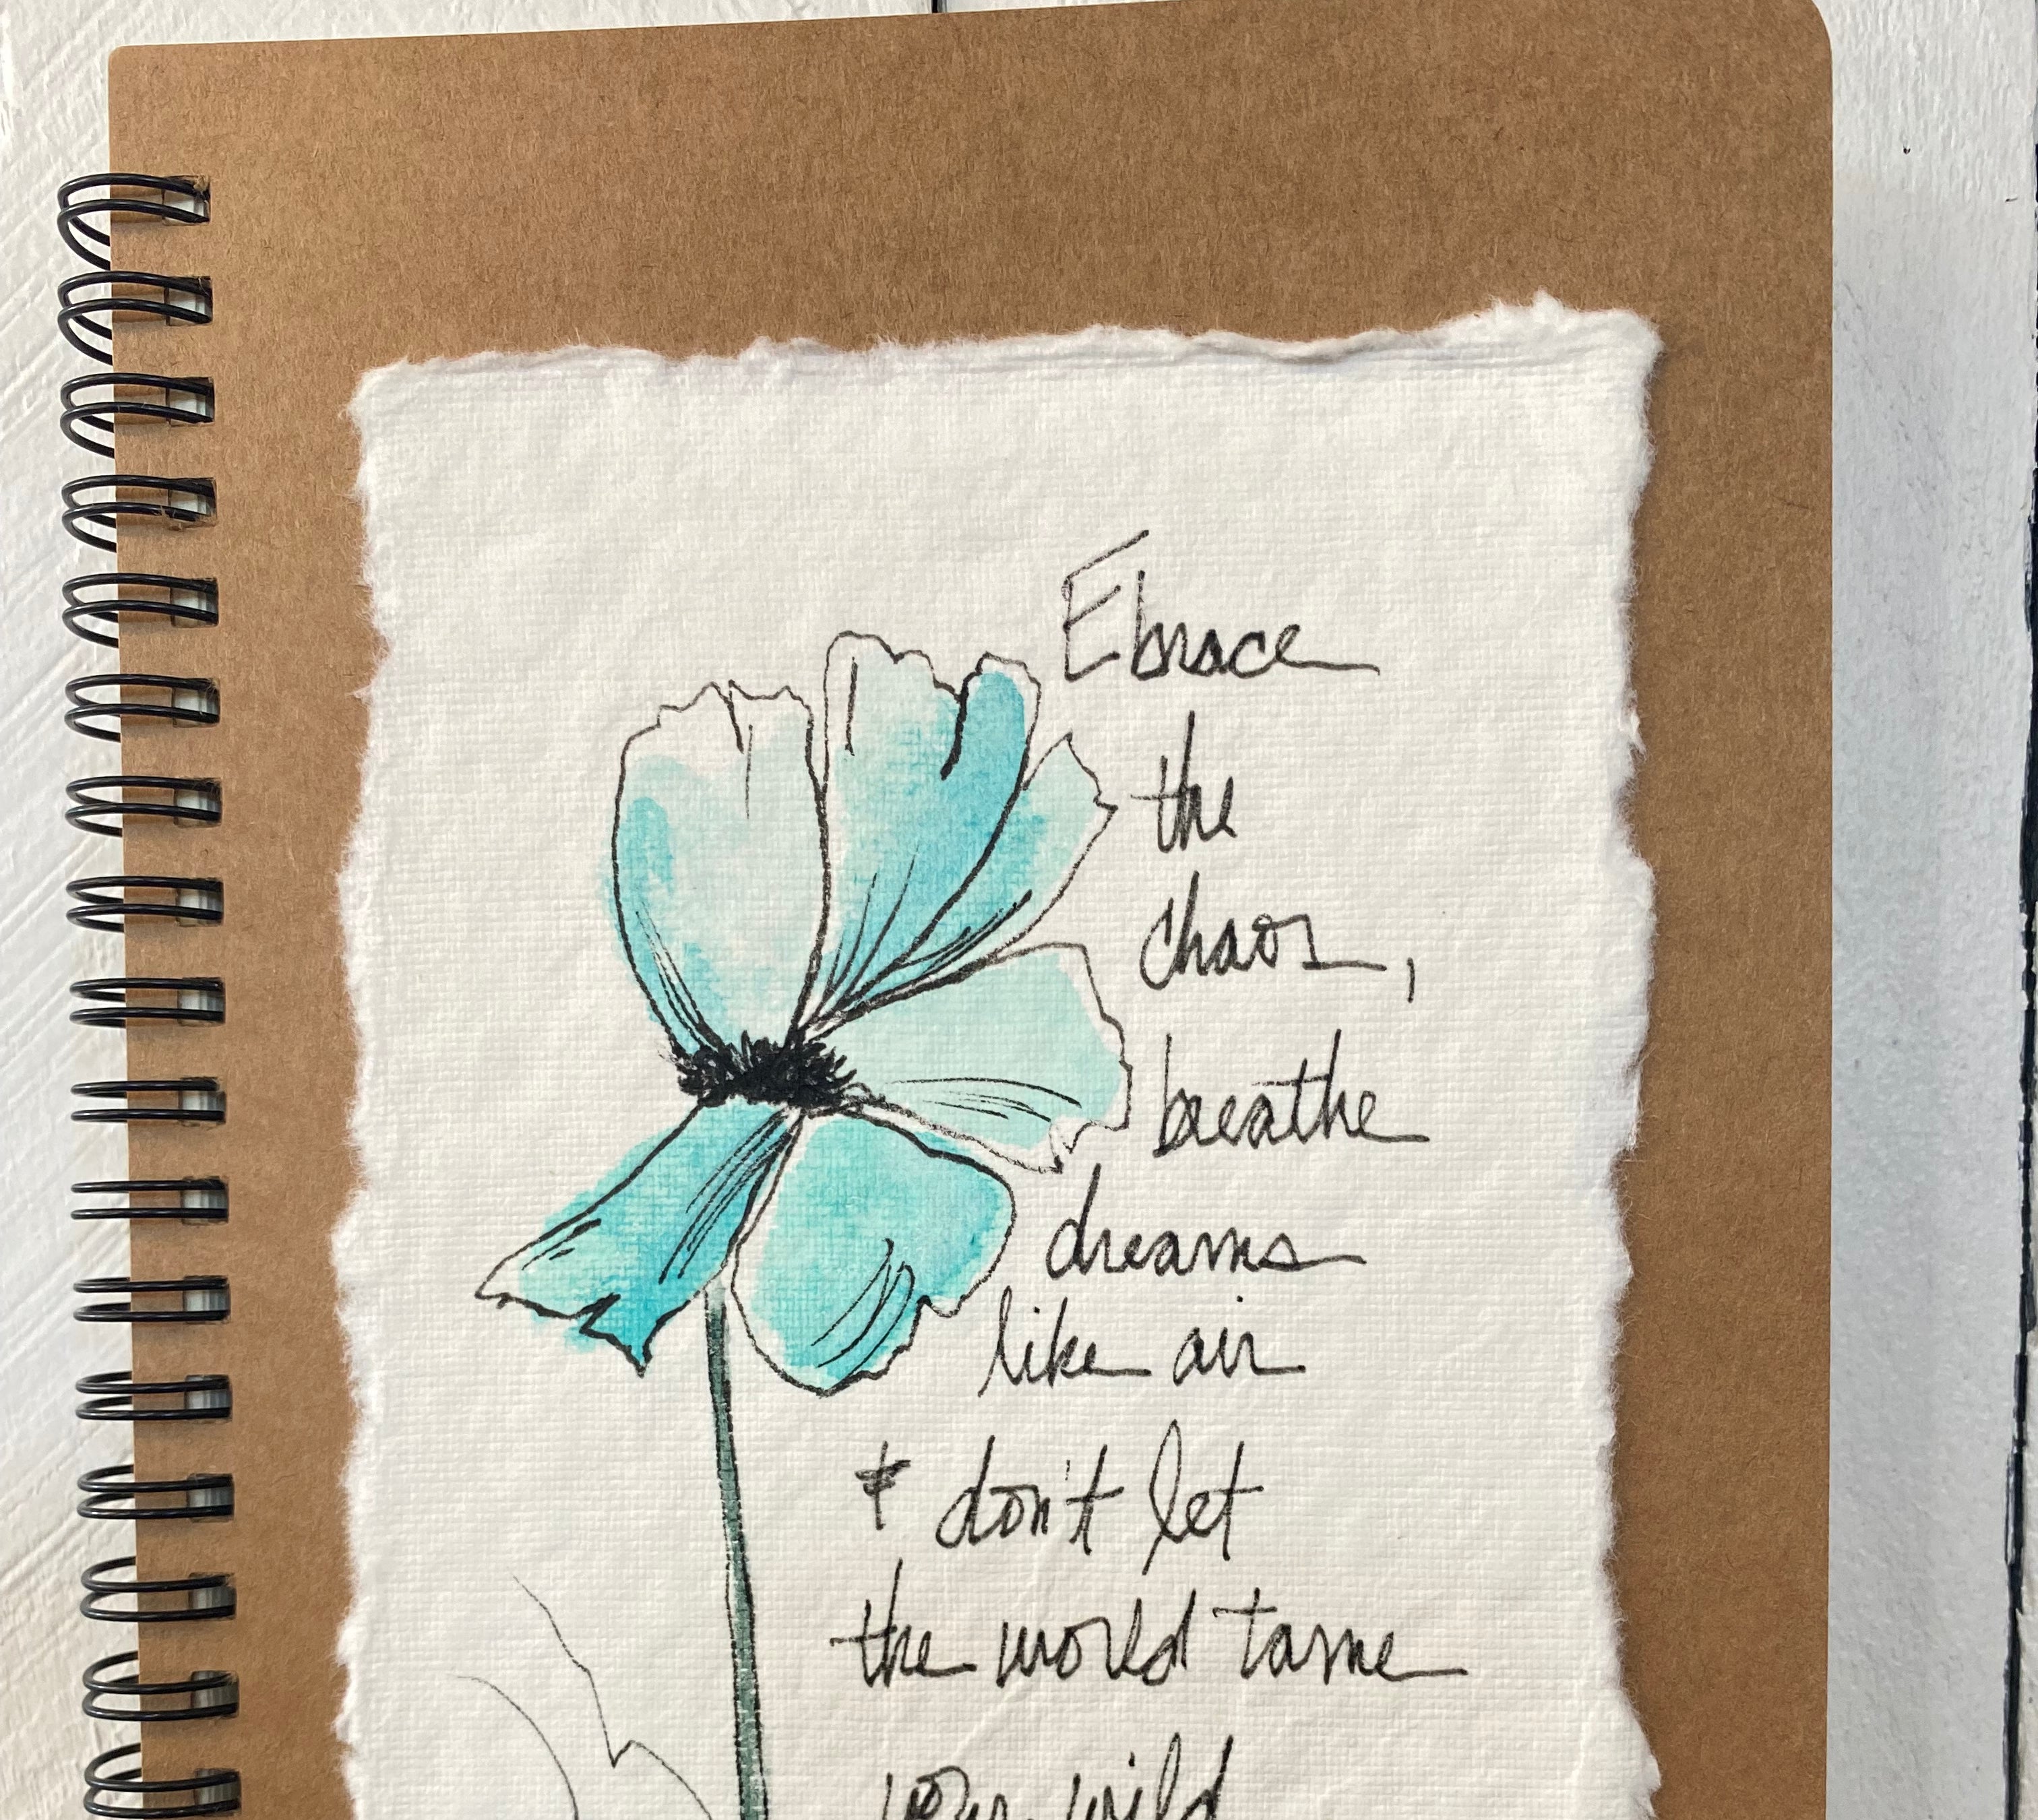 Ebrace
the
chaos,
breathe
dreams
like air
& don't let
the world tame
your wild